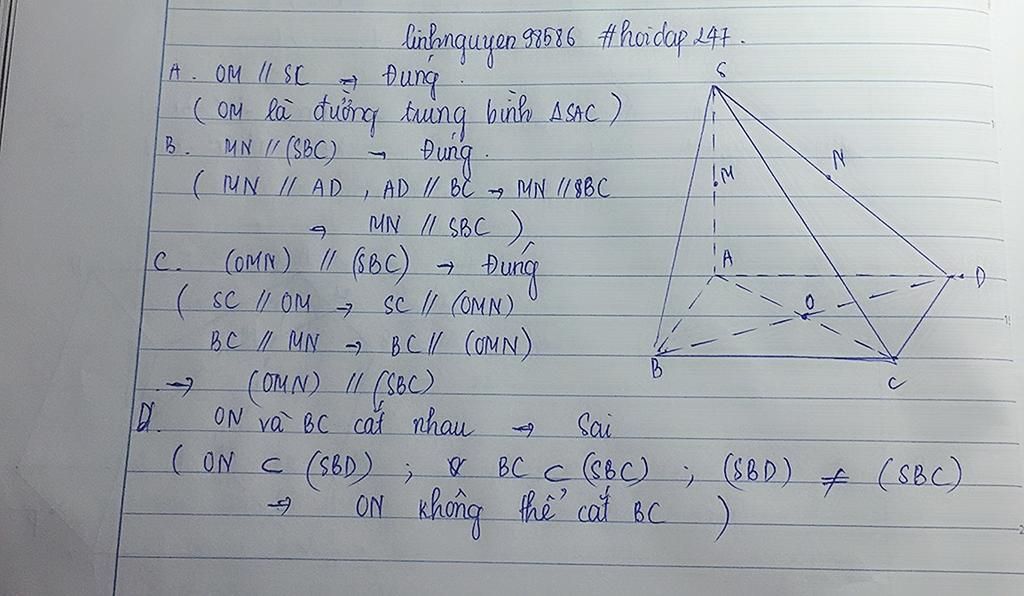 linhnguyen98586 #hoidap247.
A. OM // SC → Đúng.
( OM là đường trung bình ΔSAC )
B. MN // (SBC) → Đúng.
( MN // AD , AD // BC → MN // SBC
→ MN // SBC )
C. (OMN) // (SBC) → Đúng
( SC // OM → SC // (OMN)
BC // MN → BC // (OMN)
→ (OMN) // (SBC)
D. ON và BC cắt nhau → Sai
( ON ⊂ (SBD) ; BC ⊂ (SBC) ; (SBD) ≠ (SBC)
→ ON không thể cắt BC )
S
N
M
A
D
O
B
C